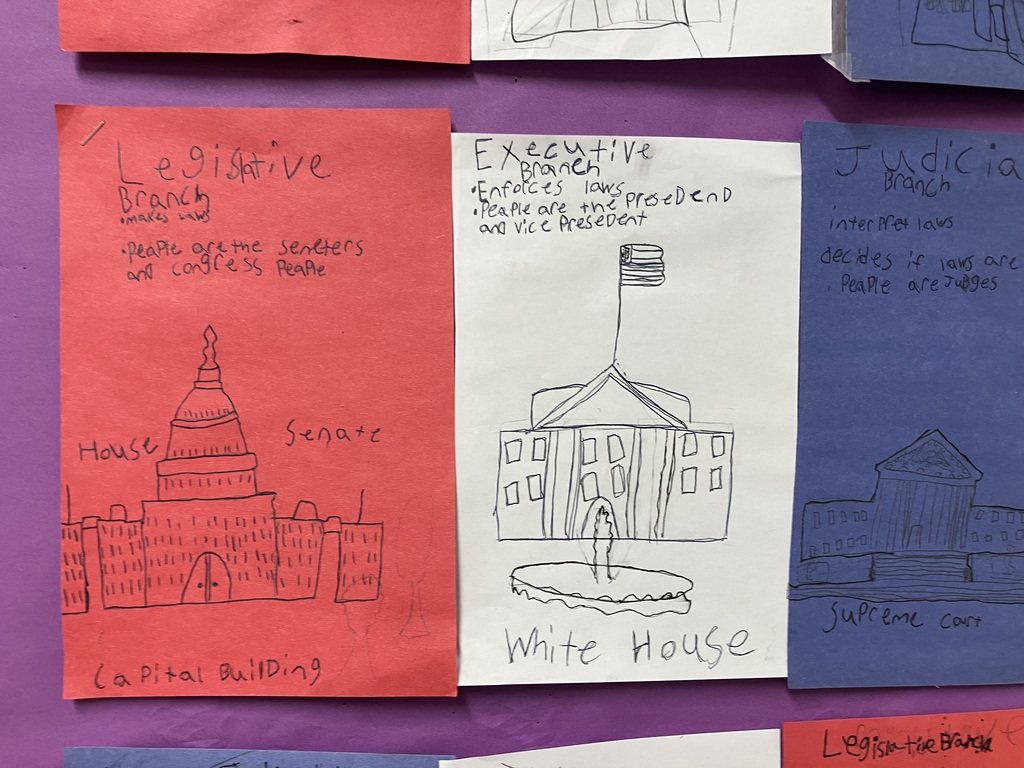 Legislative
Branch
•makes laws
•Peaple are the seneters
and congress Peaple
House
Senate
Capital Building
Executive
Branch
•Enforces laws
•Peaple are the PreseDenD
and vice PreseDent
White House
Judicia
Branch
interpret laws
decides if laws are
. Peaple are Judges
Supreme Court
Legislative Branch